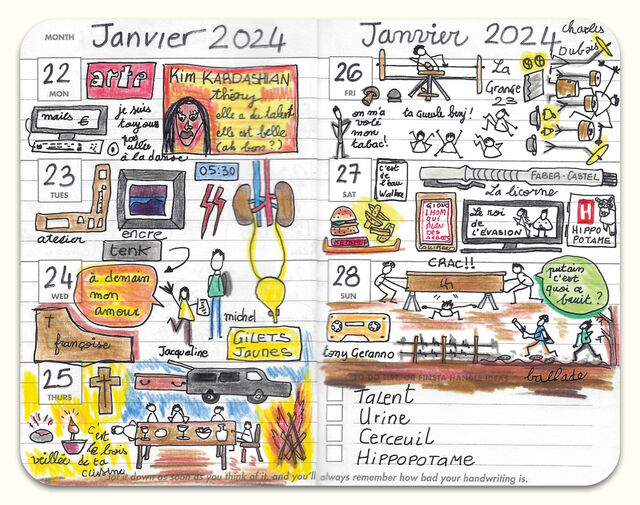 MONTH
Janvier 2024
22
MON
arte
Kim KARDASHIAN
theory
elle a du talent
elle est belle
(ah bon?)
mails €
je suis
toujours
pas allée
à la danse
23
TUES
atelier
encre
tenk
05:30
24
WED
à demain
mon
amour
françoise
Jacqueline
michel
GILETS
JAUNES
25
THURS
veillée
C'est
le bois
de ta
cuisine
Jot it down as soon as you think of it, and you'll always remember how bad your handwriting is.
Janvier 2024
Charlis
Dubois
26
FRI
La
Grange
23
on m'a
volé
mon
tabac!
ta gueule benj!
27
SAT
c'est
de l'eau
Walter
FABER-CASTEL
La licorne
KETCHUP
GIONO
L'HOM
QUI
PLAN
DES
ARBRES
GALLIMARD
Le roi
de
L'ÉVASION
H
HIPPO
POTAME
28
SUN
CRAC!!
putain
c'est
quoi ce
bruit?
tony Geranno
ballade
TO-DO LIST, OR FINSTA HANDLE IDEAS
Talent
Urine
Cerceuil
HIPPOPOTAME